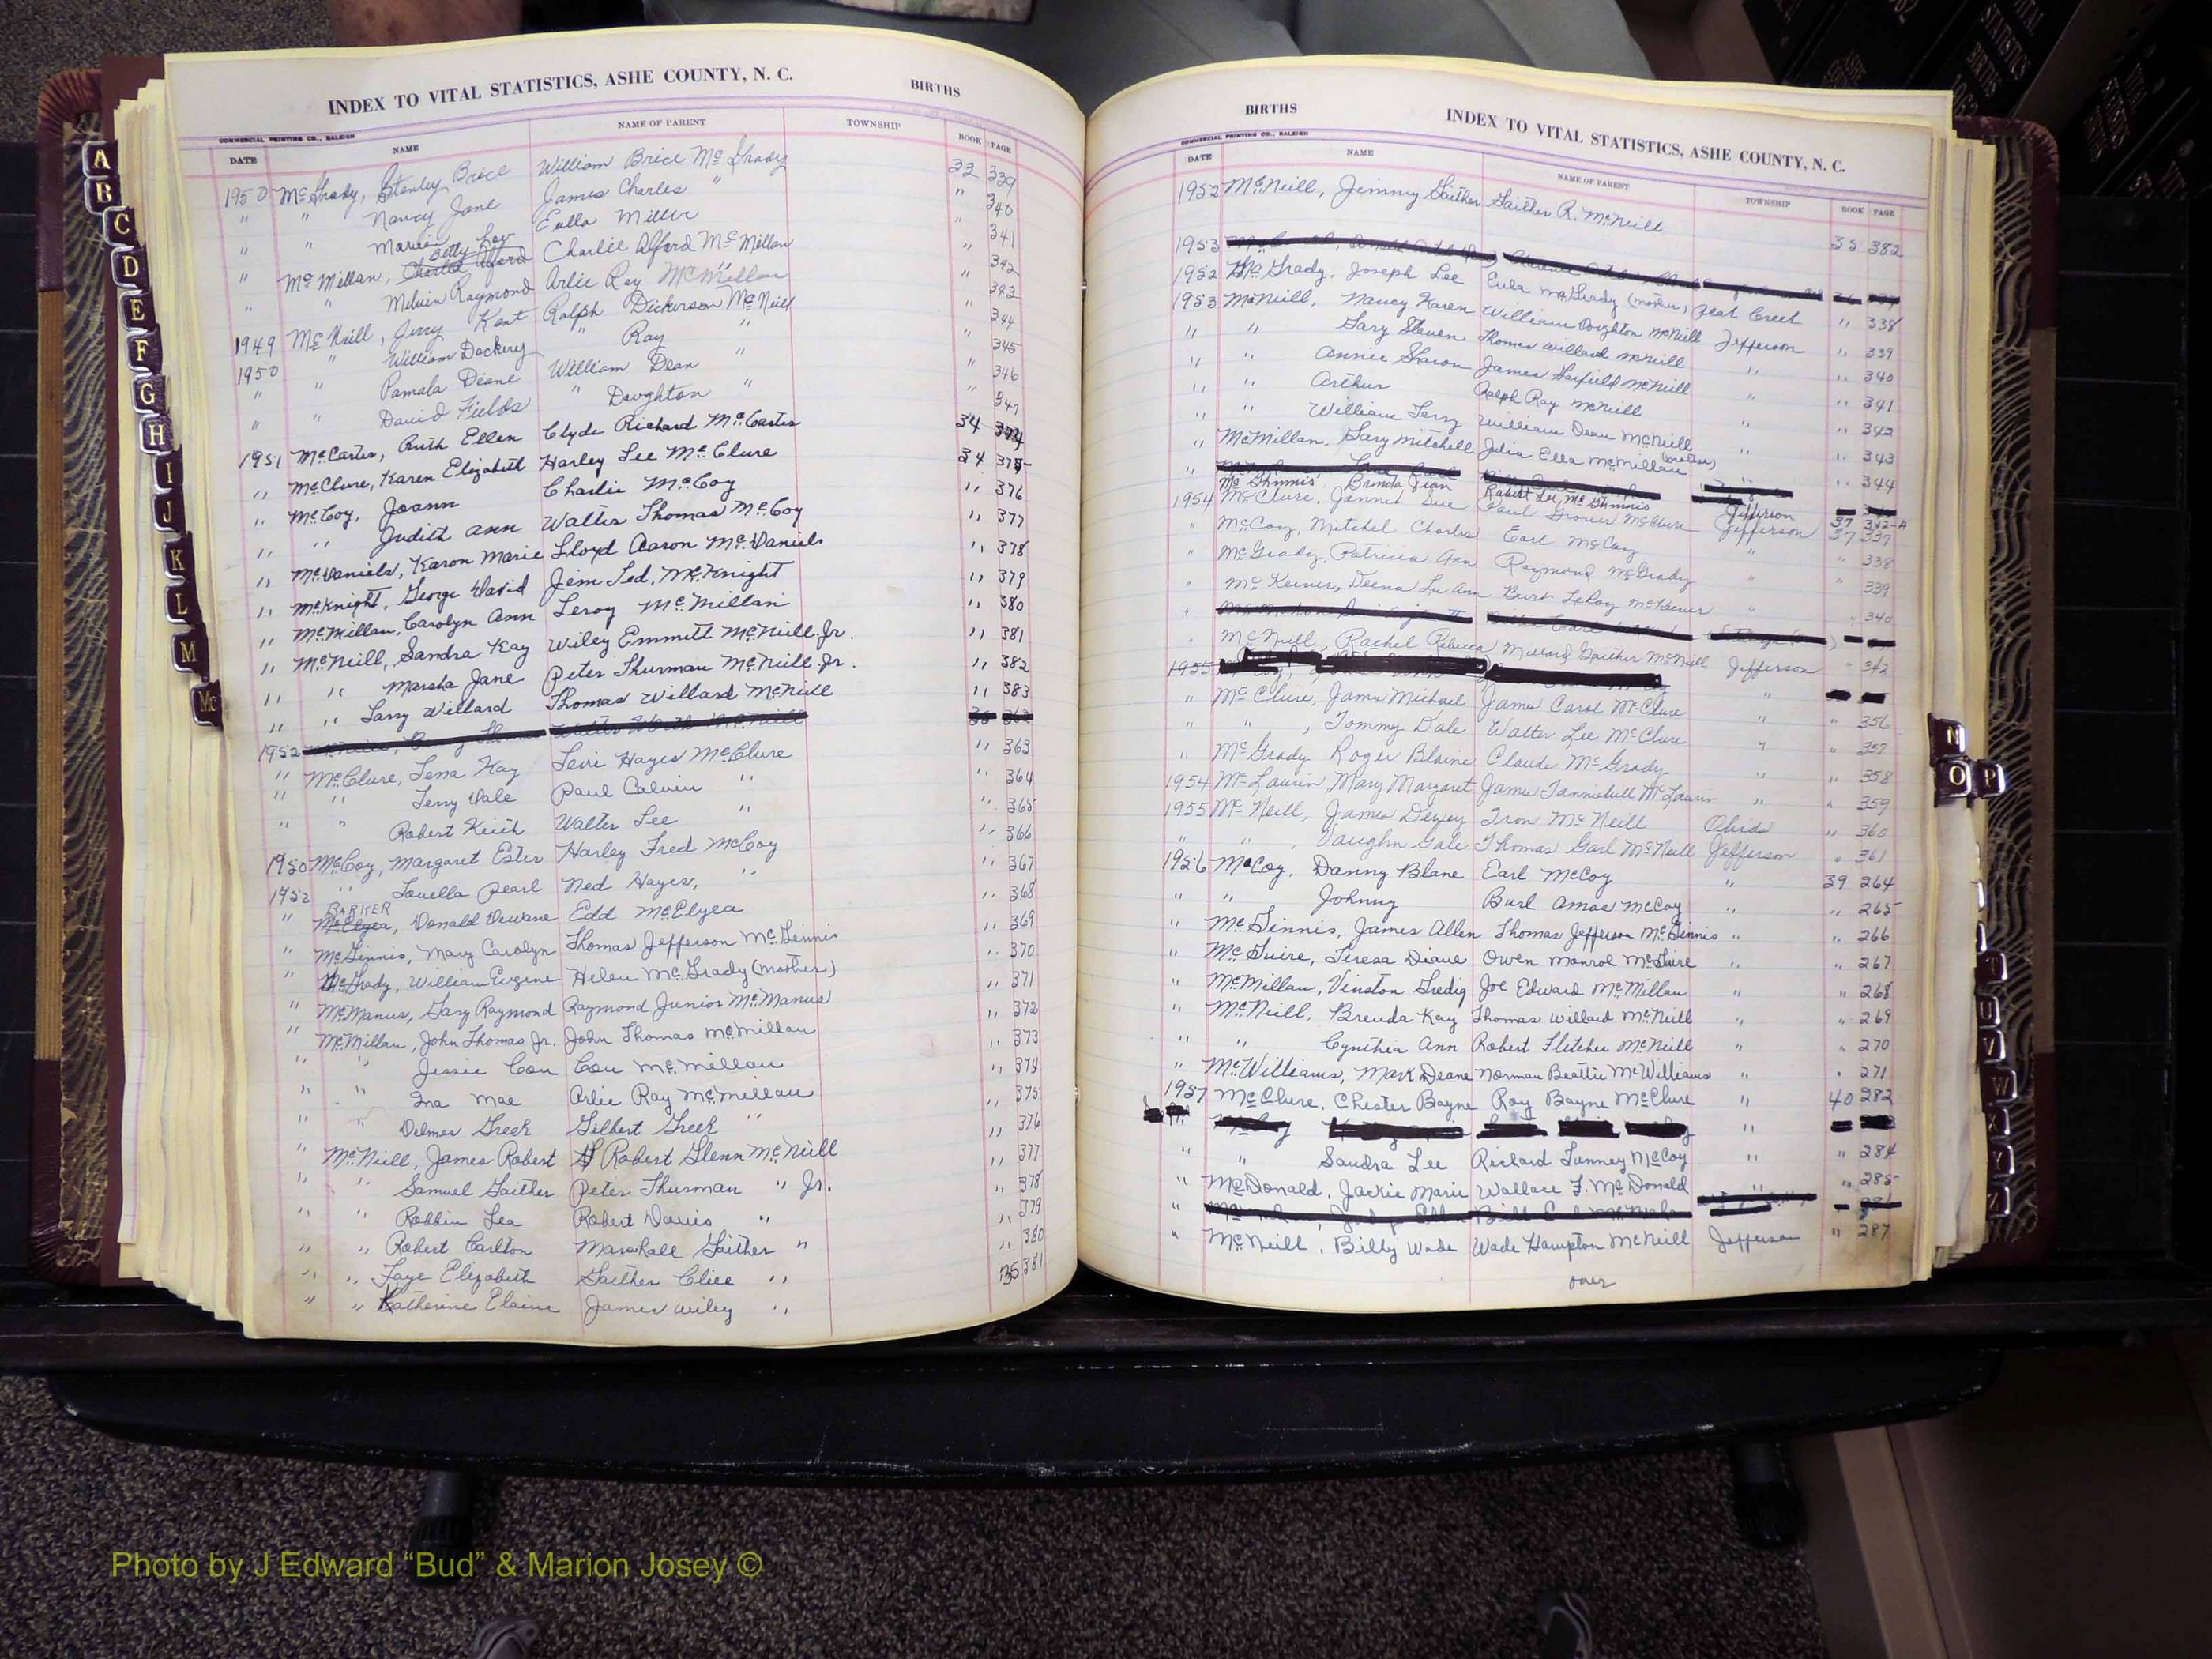 INDEX TO VITAL STATISTICS, ASHE COUNTY, N. C. BIRTHS
COMMERCIAL PRINTING CO., RALEIGH
DATE NAME NAME OF PARENT TOWNSHIP BOOK PAGE
1950 McGrady, Stanley Brice William Brice McGrady 33 339
" " Nancy Jane James Charles " " 340
" " Marian Eulla Miller " 341
" McMillan, Betty Lou Charlie Alford Charlie Alford McMillan " 342
" " Melvin Raymond Arlie Ray McMillan " 343
1949 McNeill, Jerry Kent Ralph Dickerson McNeill " 344
1950 " William Dockery " Ray " " 345
" " Pamala Diane William Dean " " 346
" " David Fields " Doughton " " 347
1951 McCarter, Ruth Ellen Clyde Richard McCarter 34 374
" McClure, Karen Elizabeth Harley Lee McClure 34 375
" McCoy, Joann Charlie McCoy " 376
" " Judith Ann Walter Thomas McCoy " 377
" McDaniels, Karon Marie Lloyd Aaron McDaniels " 378
" McKnight, George David Jim Ted McKnight " 379
" McMillan, Carolyn Ann Leroy McMillan " 380
" McNeill, Sandra Kay Wiley Emmitt McNeill Jr. " 381
" " Marsha Jane Peter Thurman McNeill Jr. " 382
" " Larry Willard Thomas Willard McNeill " 383
1952 35 362
" McClure, Lena Kay Levi Hayes McClure " 363
" " Terry Dale Paul Calvin " " 364
" " Robert Keith Walter Lee " " 365
1950 McCoy, Margaret Ester Harley Fred McCoy " 366
1952 " Louella Pearl Ned Hayes, " " 367
" BARKER McElyea, Donald Dewane Edd McElyea " 368
" McGinnis, Mary Carolyn Thomas Jefferson McGinnis " 369
" McGrady, William Eugene Helen McGrady (mother) " 370
" McManus, Gary Raymond Raymond Junior McManus " 371
" McMillan, John Thomas Jr. John Thomas McMillan " 372
" " Jessie Cou Cou McMillan " 373
" " Ina Mae Arlie Ray McMillan " 374
" " Delmer Greek Gilbert Greek " " 375
" McNeill, James Robert Robert Glenn McNeill " 376
" " Samuel Gaither Peter Thurman " Jr. " 377
" " Robbin Lea Robert Davis " " 378
" " Robert Carlton Marshall Gaither " " 379
" " Faye Elizabeth Gaither Clice " " 380
" " Katherine Elaine James Wiley " 35 381
BIRTHS INDEX TO VITAL STATISTICS, ASHE COUNTY, N. C.
COMMERCIAL PRINTING CO., RALEIGH
DATE NAME NAME OF PARENT TOWNSHIP BOOK PAGE
1952 McNeill, Jimmy Gaither Gaither R. McNeill 35 382
1953
1952 McGrady, Joseph Lee Eula McGrady (mother) Peak Creek " 338
1953 McNeill, Nancy Karen William Doughton McNeill Jefferson " 339
" " Gary Steven Thomas Willard McNeill " " 340
" " Annie Sharon James Garfield McNeill " 341
" " Arthur Ralph Ray McNeill " " 342
" " William Terry William Dean McNeill " " 343
" McMillan, Gary Mitchell Julia Ella McMillan (mother) " " 344
" McGhinnis Brenda Jean Robert Lee McGhinnis Jefferson 37 342-A
1954 McClure, Jannet Sue Paul Grover McClure Jefferson 37 337
" McCoy, Mitchel Charles Earl McCoy " " 338
" McGrady, Patricia Ann Raymond McGrady " " 339
" McKeever, Deena Lu Ann Burt LeRoy McKeever " " 340
"
" McNeill, Rachel Rebecca Millard Gaither McNeill Jefferson " 342
1955
" McClure, James Michael James Carol McClure " " 356
" " , Tommy Dale Walter Lee McClure " " 357
" McGrady Roger Blaine Claude McGrady " " 358
1954 McLaurin, Mary Margaret James Tanniehill McLaurin " " 359
1955 McNeill, James Dewey Tron McNeill Obids " 360
" " , Vaughn Gale Thomas Garl McNeill Jefferson " 361
1956 McCoy, Danny Blane Earl McCoy " 39 264
" " Johnny Burl Amos McCoy " " 265
" McGinnis, James Allen Thomas Jefferson McGinnis " " 266
" McGuire, Teresa Diane Owen Monroe McGuire " " 267
" McMillan, Vinston Gredig Joe Edward McMillan " " 268
" McNeill, Brenda Kay Thomas Willard McNeill " " 269
" " Cynthia Ann Robert Fletcher McNeill " " 270
" McWilliams, Mark Deane Norman Beattie McWilliams " " 271
1957 McClure, Chester Bayne Roy Bayne McClure " 40 282
"
" " Sandra Lee Richard Tanney McCoy " " 284
" McDonald, Jackie Marie Wallace F. McDonald " 285
" McNeill, Billy Wade Wade Hampton McNeill Jefferson " 287
over
A
B
C
D
E
F
G
H
I
J
K
L
M
Mc
N
O
P
T
U
V
W
X
Y
Z
Photo by J Edward “Bud” & Marion Josey ©